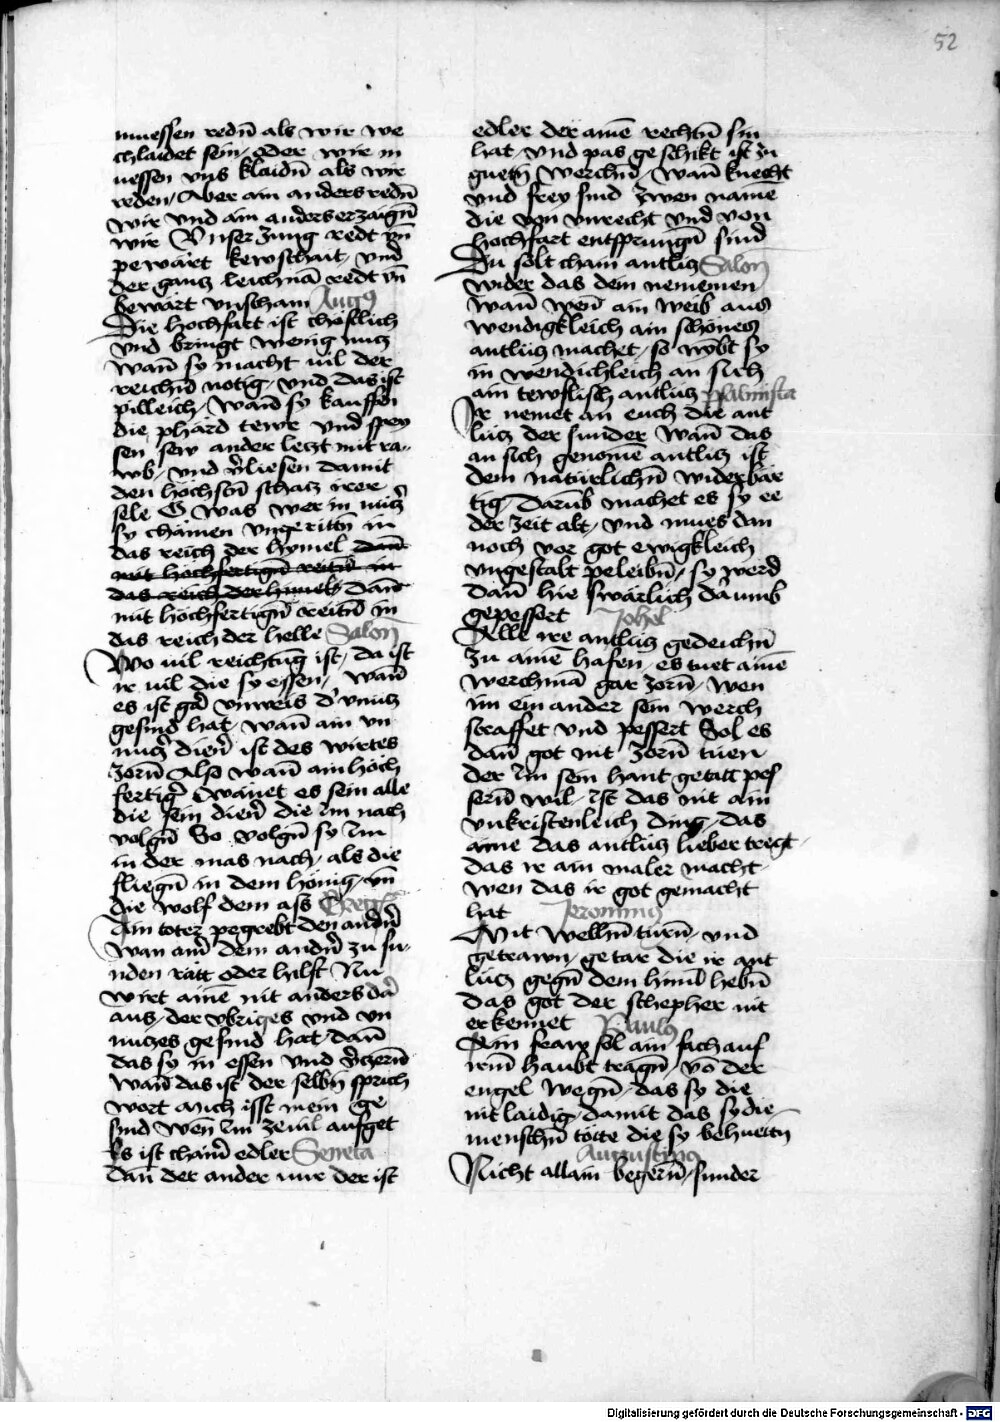 52
muessen redn̄ als wir we
chlaidet sein / oder wir m
uessen vns klaidn̄ als wir
reden / Aber ain anders redn̄
wir vnd ain anders erzaign̄
wir Vnser zung redt vn̄
pewärt kewschait / vnd
der gantz leichnā redt vn̄
bewärt vnscham Augꝰ
Die hochfart ist chöstlich
vnd bringt wenig nutz
wan̄ sy macht uil der
reichn̄ notig / vnd das ist
pilleich / wan̄ sy kauffen
die phärd tewr vnd spey
sen sew ander lewt mit ra-
wb / vnd v̄liesen damit
den höchstn̄ schatz irer
sele O was wer in nütz
sy chämen vngerittn̄ in
das reich der hymel dan̄
mit hochfertign̄ reitn̄ in
das reich der himel dan̄
mit hochfertign̄ reitn̄ in
das reich der helle Salon̄
Wo uil reichtūg ist / da ist
ir uil die sy essen / wan̄
es ist gar vnweis d' vnnutz
gesind hat / wan̄ ain vn
nutz dien̄ ist des wirtes
zorn̄ Also wan̄ ain hoch
fertig' wänet es sein alle
die sein dien̄ die im nach
volgn̄ So volgn̄ sy im
in der mas nach / als die
fliegn̄ in dem hönig / vn̄
die wolf dem ass Gregꝰ
Ain toter pegrebt den andn̄
wan ain̄ dem andn̄ zu su-
nden rätt oder hilft Nu
wirt ainē nit anders da
aus / der vbriges vnd vn
nutzes gesind hat / dan̄
das sy in essen vnd v̄czern̄
wan̄ das ist der selbn̄ sprich
wort Mich isst mein ge
sind wen̄ im zeuil aufget
Es ist chain̄ edler Seneca
dan̄ der ander nur der ist
edler der ainē rechtn̄ sin
hat / vnd pas geschikt ist zu
guetn̄ werchn̄ / wan̄ knecht
vnd frey sind zwen namē
die von vnrecht vnd von
hochfart entsprungn̄ sind
Du solt chain antlitz Salon̄
wider das dein nemmen
wan̄ wen̄ ain weib aus
wendigkleich ain schönes
antlütz machet / so wȯbt sy
in wendichleich an sich
ain tewflisch antlütz psalmista
Ir nemet an euch die ant
lütz der sunder wan̄ das
an sich genomē antlitz ist
dem natürlichn̄ widerbär
tig / Darūb machet es sy ee
der zeit alt / vnd mues dan
noch vor got ewigkleich
vngestalt peleibn̄ / sy werd
dan̄ hie swärlich darumb
gepessert Johel
Alle ire antlütz gedeichn̄
zu ainē hafen / es tuet ainē
werchmā gar zorn̄ / wen
im ein ander sein werch
straffet vnd pessert Sol es
dan̄ got nit zorn̄ tuen
der im sein hant getatt pes
sern̄ wil / ist das nit ain
vnkristenleich ding / das
aine das antlütz lieber tregt
das ir ain maler macht
wen das ir got gemacht
hat Jeronimꝰ
Mit wellhn̄ türn̄ / vnd
getrawn / getar die ir ant
lütz gegn̄ dem himl hebn̄
das got der schepher nit
erkennet Paulꝰ
Ain fraw sol ain sach auf
irm̄ haubt tragn̄ / vō der
engel wegn̄ / das sy die
nit laidig / damit das sy die
menschn̄ tötte die sy behuettn̄
Augustinꝰ
Nicht allain begern̄ / sunder
Digitalisierung gefördert durch die Deutsche Forschungsgemeinschaft - DFG